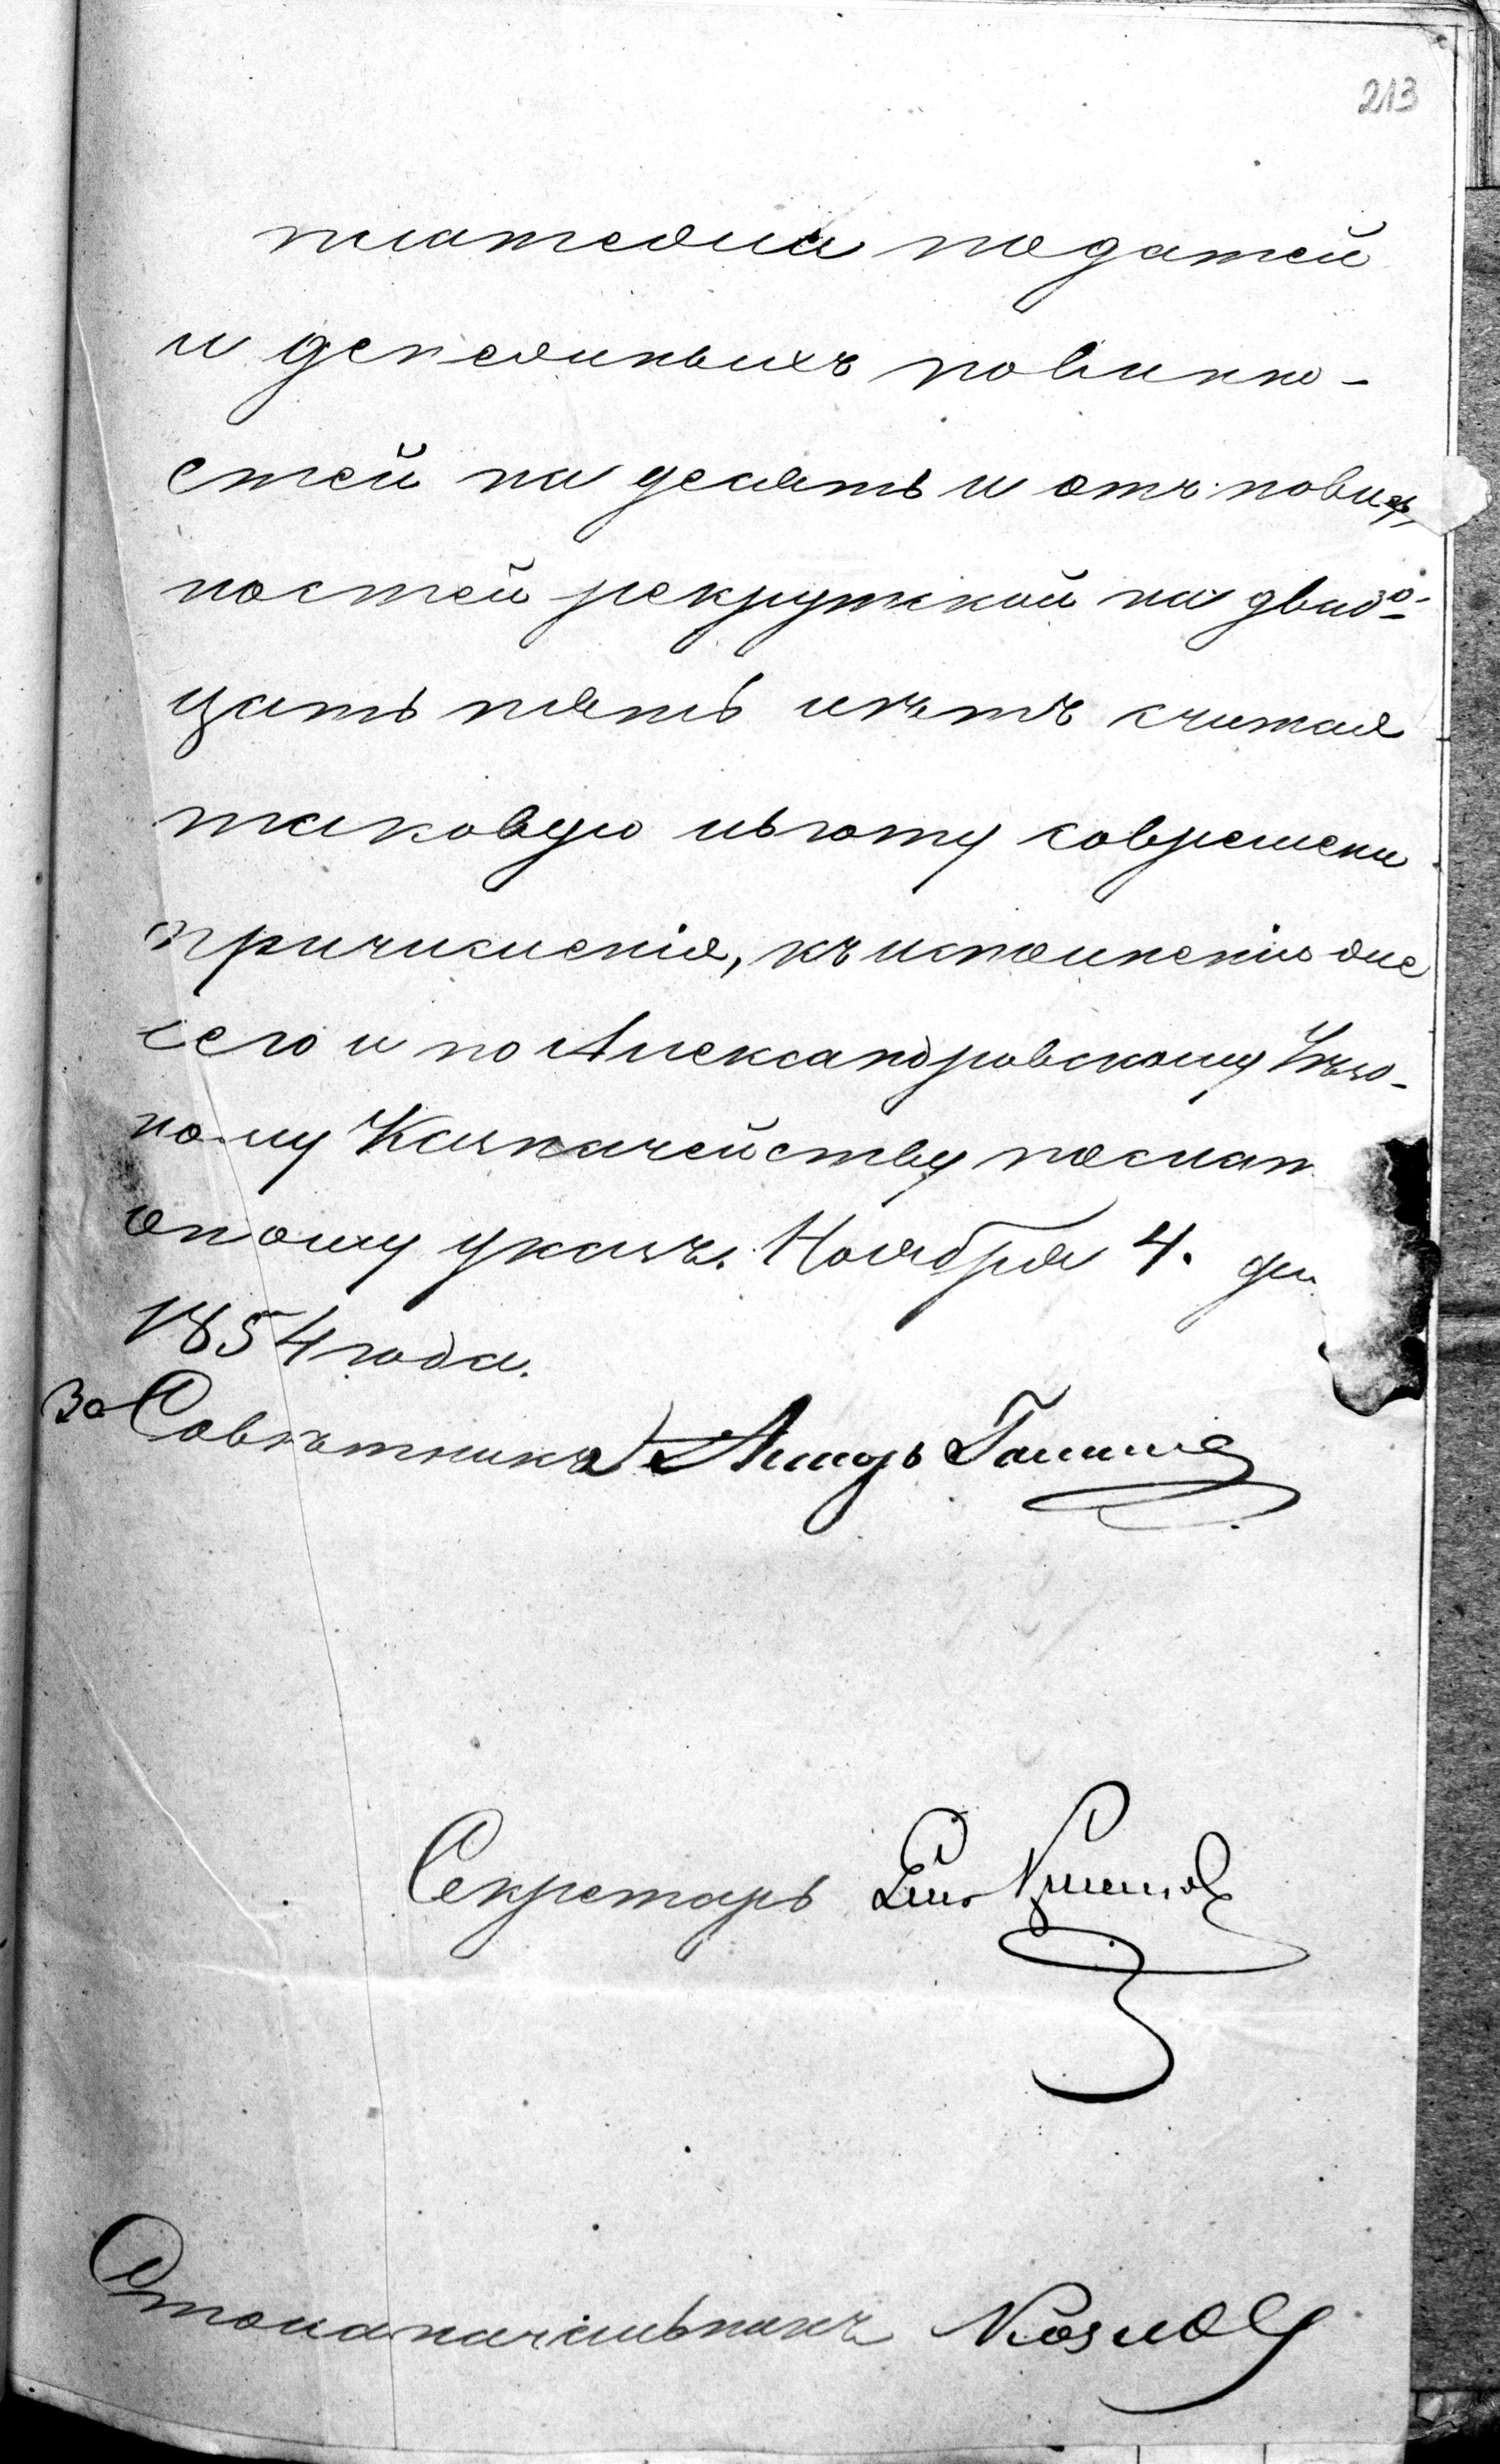 213
платежа податей
и денежныхъ повинно-
стей на десять и отъ повин
ностей рекрутской на двад-
цать пять лѣтъ считая
таковую льготу современи
причисленія, къ исполненію она
сего и по Александровскому Уѣзд-
ному Казначейству послан
оному указъ. Ноября 4. дн
1854 года.
За Совѣтника
Секретарь
Столоначальникъ Козлов